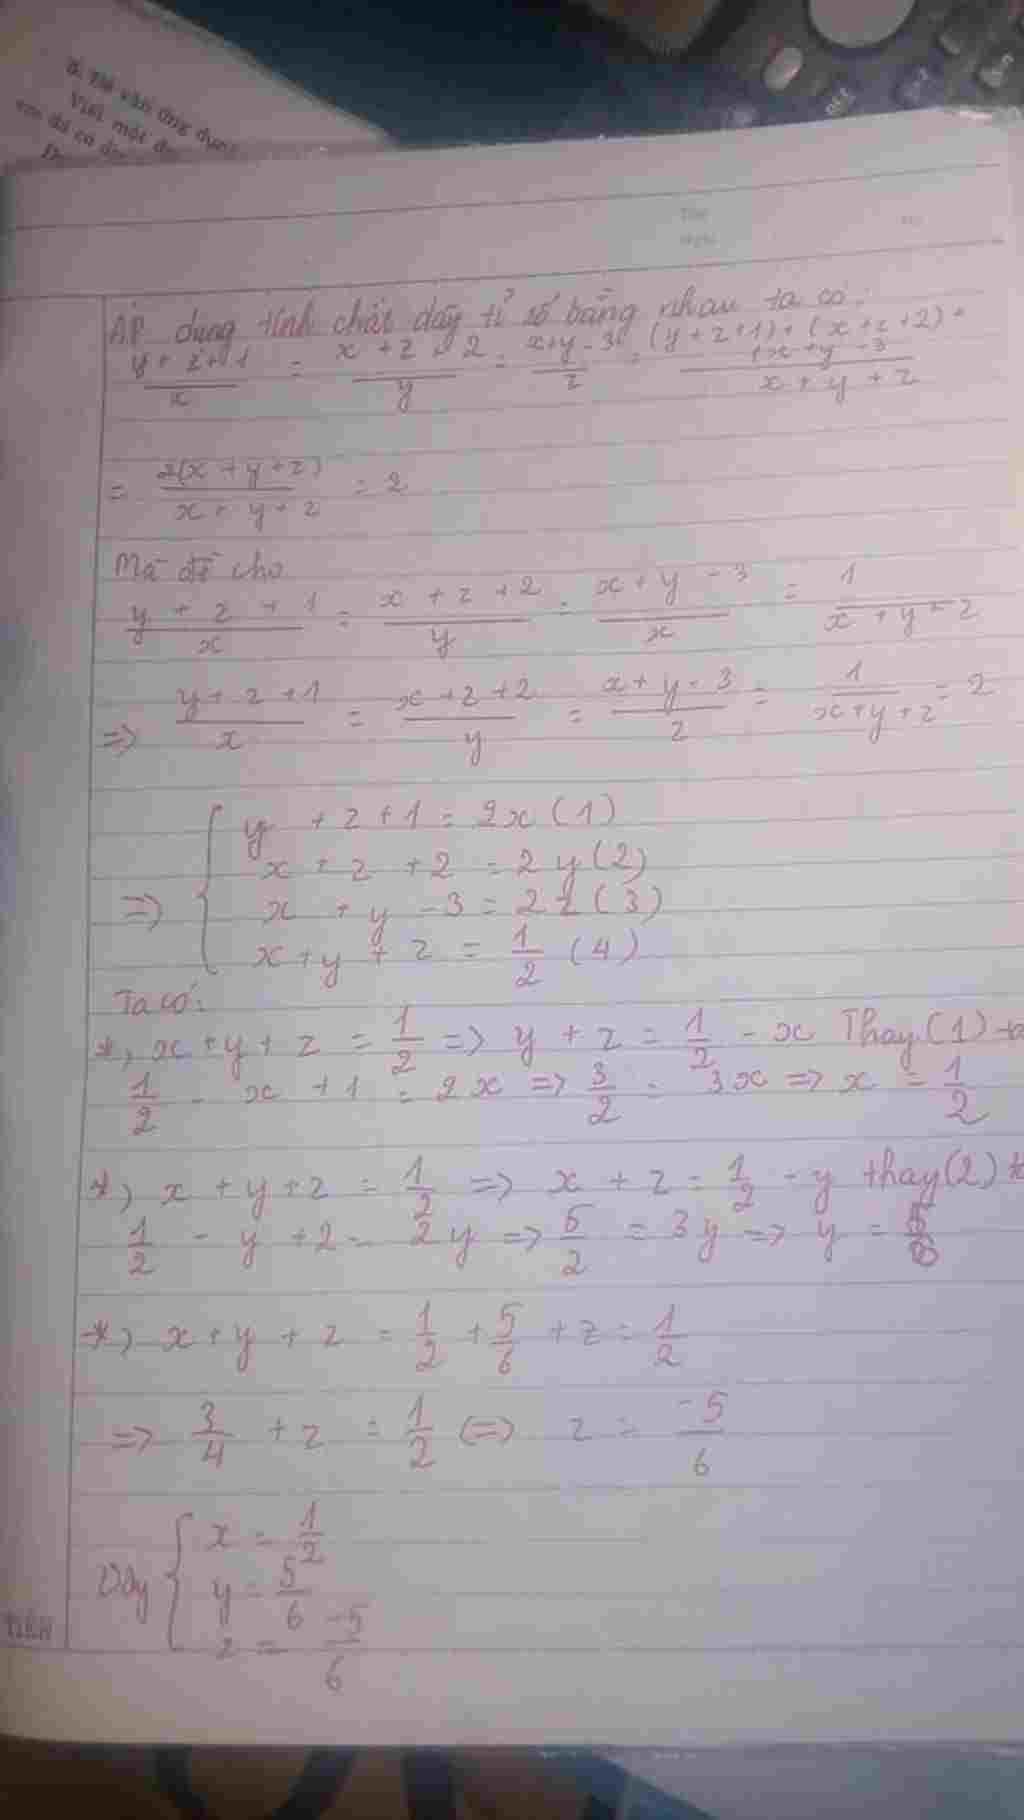 5. Bài văn ứng dụng
Viết một
em đã
Áp dụng tính chất dãy tỉ số bằng nhau ta có:
y + z + 1 / x = x + z + 2 / y = x + y - 3 / z = (y + z + 1) + (x + z + 2) + (x + y - 3) / x + y + z
= 2(x + y + z) / x + y + z = 2
Mà đề cho
y + z + 1 / x = x + z + 2 / y = x + y - 3 / x = 1 / x + y + z
=> y + z + 1 / x = x + z + 2 / y = x + y - 3 / z = 1 / x + y + z = 2
y + z + 1 = 2x (1)
=> x + z + 2 = 2y (2)
x + y - 3 = 2z (3)
x + y + z = 1/2 (4)
Ta có:
*, x + y + z = 1/2 => y + z = 1/2 - x Thay (1) ta
1/2 - x + 1 = 2x => 3/2 = 3x => x = 1/2
*, x + y + z = 1/2 => x + z = 1/2 - y thay (2) ta
1/2 - y + 2 = 2y => 5/2 = 3y => y = 5/6
*, x + y + z = 1/2 + 5/6 + z = 1/2
=> 3/4 + z = 1/2 (=> z = -5/6
x = 1/2
Vậy y = 5/6
z = -5/6
TIẾN